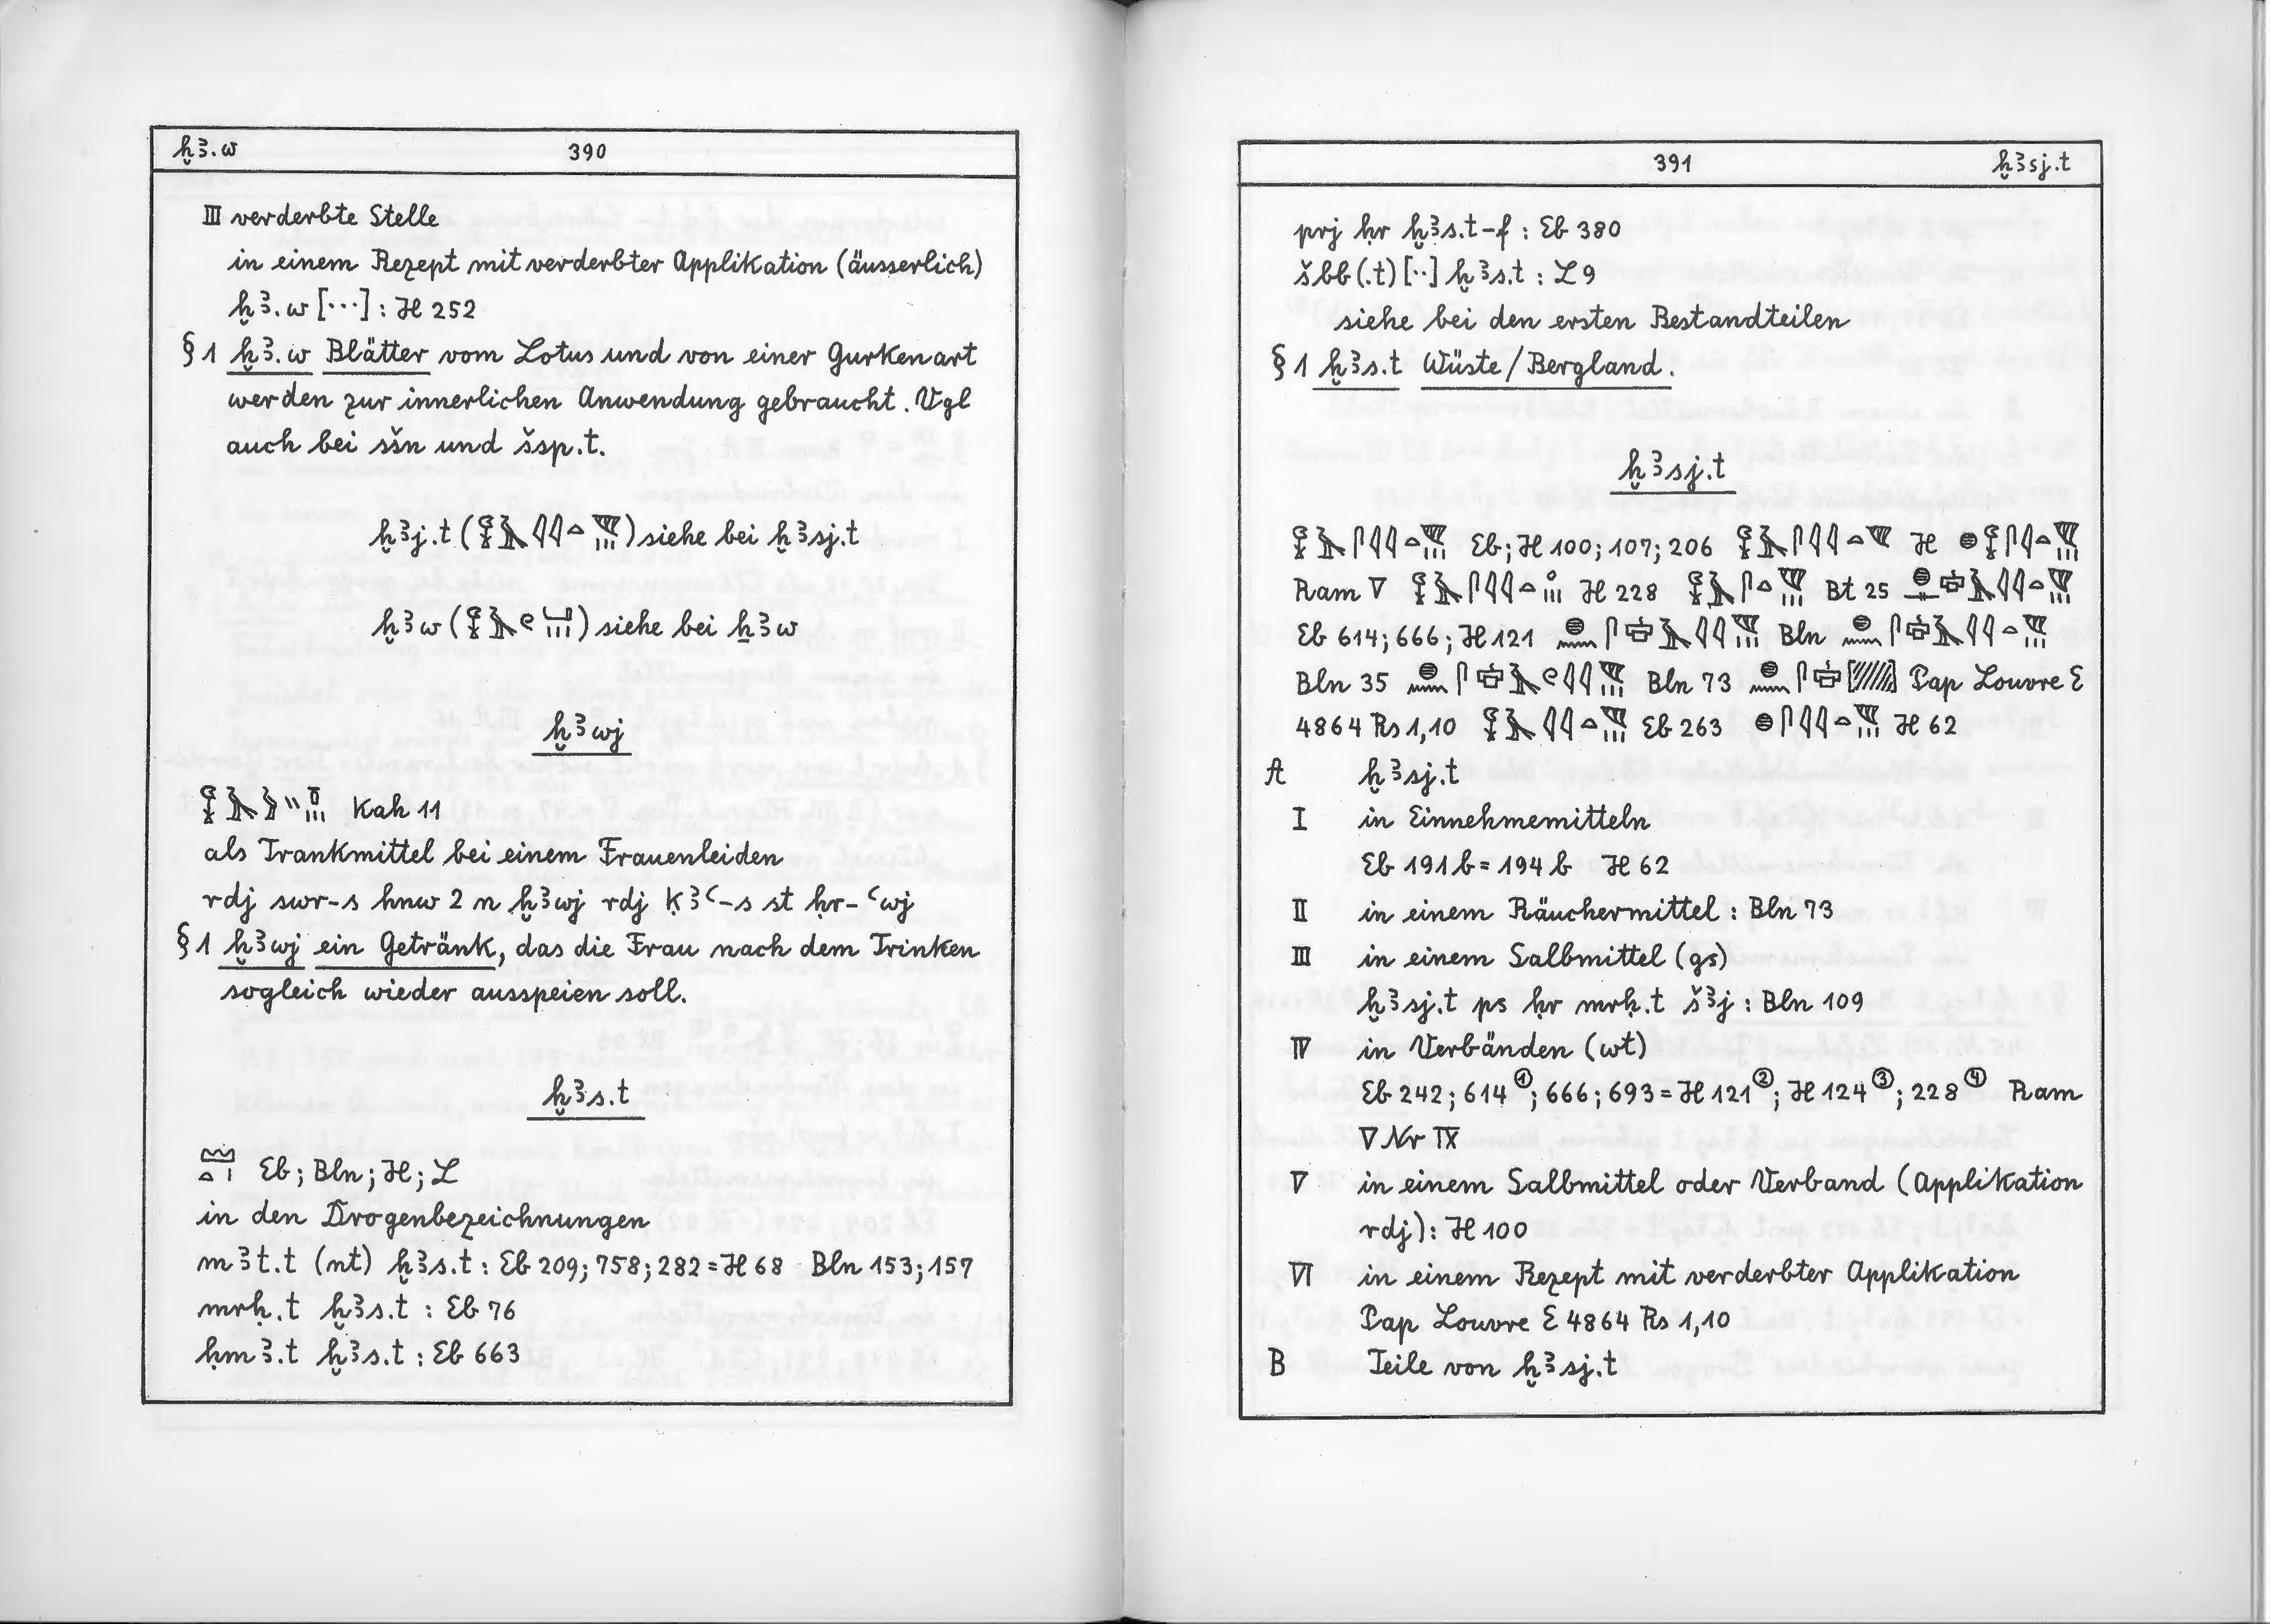 ḫꜣ.w 390
III verderbte Stelle
in einem Rezept mit verderbter Applikation (äusserlich)
ḫꜣ.w [...] : H 252
§ 1 ḫꜣ.w Blätter vom Lotus und von einer Gurkenart
werden zur innerlichen Anwendung gebraucht. Vgl
auch bei sšn und šsp.t.
ḫꜣj.t (𓆼𓄿𓇋𓇋𓏏𓆰𓏥) siehe bei ḫꜣsj.t
ḫꜣw () siehe bei ẖꜣw
ḫꜣwj
Kah 11
als Trankmittel bei einem Frauenleiden
rdj swr-s hnw 2 n ḫꜣwj rdj ḳꜣꜥ-s st ḥr-ꜥwj
§ 1 ḫꜣwj ein Getränk, das die Frau nach dem Trinken
sogleich wieder ausspeien soll.
ḫꜣs.t
𓈉𓏏𓏤 Eb; Bln; H; L
in den Drogenbezeichnungen
mꜣt.t (nt) ḫꜣs.t : Eb 209; 758; 282 = H 68 Bln 153; 157
mrḥ.t ḫꜣs.t : Eb 76
ḥmꜣ.t ḫꜣs.t : Eb 663
391 ḫꜣsj.t
prj ḥr ḫꜣs.t-f : Eb 380
šbb(.t) [..] ḫꜣs.t : L 9
siehe bei den ersten Bestandteilen
§ 1 ḫꜣs.t Wüste/Bergland.
ḫꜣsj.t
𓆼𓄿𓋴𓇋𓇋𓏏𓆰𓏥 Eb; H 100; 107; 206 𓆼𓄿𓋴𓇋𓇋𓏏𓆰 H
Ram V H 228 𓆼𓄿𓋴𓏏𓆰𓏥 Bt 25
Eb 614; 666; H 121 Bln
Bln 35 Bln 73 Pap Louvre E
4864 Rs 1,10 𓆼𓄿𓇋𓇋𓏏𓆰𓏥 Eb 263 𓐍𓋴𓇋𓇋𓏏𓆰𓏥 H 62
A ḫꜣsj.t
I in Einnehmemitteln
Eb 191 b = 194 b H 62
II in einem Räuchermittel : Bln 73
III in einem Salbmittel (gs)
ḫꜣsj.t ps ḥr mrḥ.t šꜣj : Bln 109
IV in Verbänden (wt)
Eb 242; 614①; 666; 693 = H 121②; H 124③; 228④ Ram
V Nr IX
V in einem Salbmittel oder Verband (Applikation
rdj) : H 100
VI in einem Rezept mit verderbter Applikation
Pap Louvre E 4864 Rs 1,10
B Teile von ḫꜣsj.t